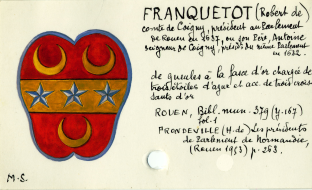 FRANQUETOT (Robert de)
comte de Coigny, président au Parlement
de Rouen en 1637, ou son Père, Antoine
seigneur de Coigny, présid. du même Parlement
en 1632.
de gueules à la fasce d'or chargée de
trois étoiles d'azur et acc. de trois crois-
sants d'or
ROUEN, Bibl. mun. 379 (y. 167)
fol. 1
PRONDEVILLE (H. de) Les présidents
de Parlement de Normandie,
(Rouen 1953) p. 263.
M-S.